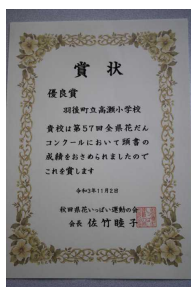 賞状
優良賞
羽後町立高瀬小学校
貴校は第57回全県花だん
コンクールにおいて頭書の
成績をおさめられましたので
これを賞します
令和3年11月2日
秋田県花いっぱい運動の会
会長 佐竹睦子